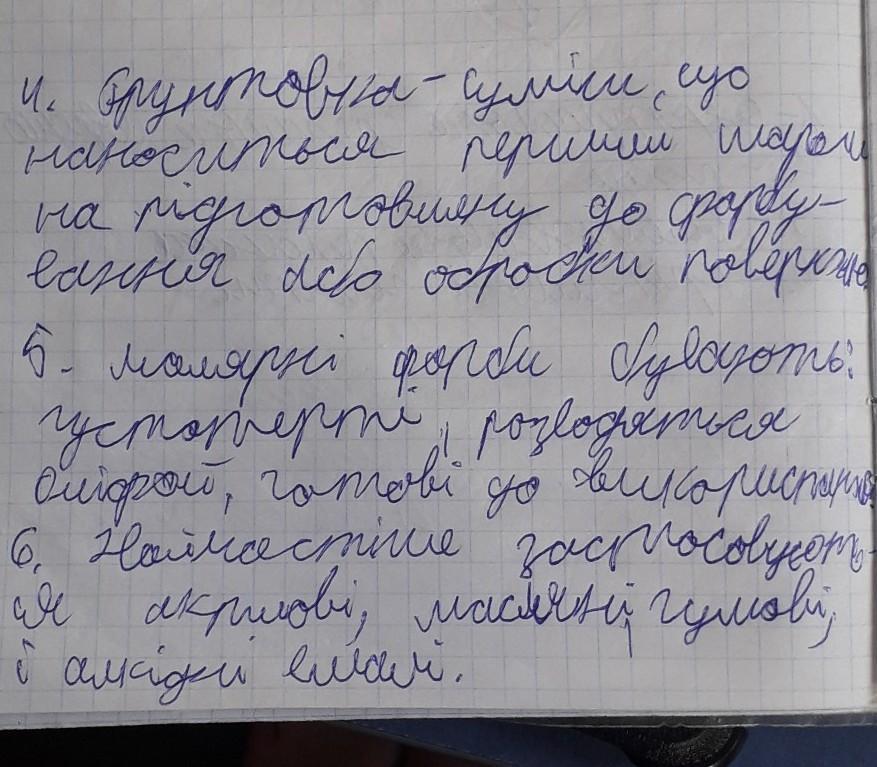 4. Ґрунтовка - суміш, що
наноситься першим шаром
на підготовлену до фарбу-
вання або обробки поверхню
5. малярні фарби бувають:
густотерті, розводяться
оліфой, готові до використання
6. Найчастіше застосовують-
ся акрилові, масляні, гумові,
і алкідні емалі.